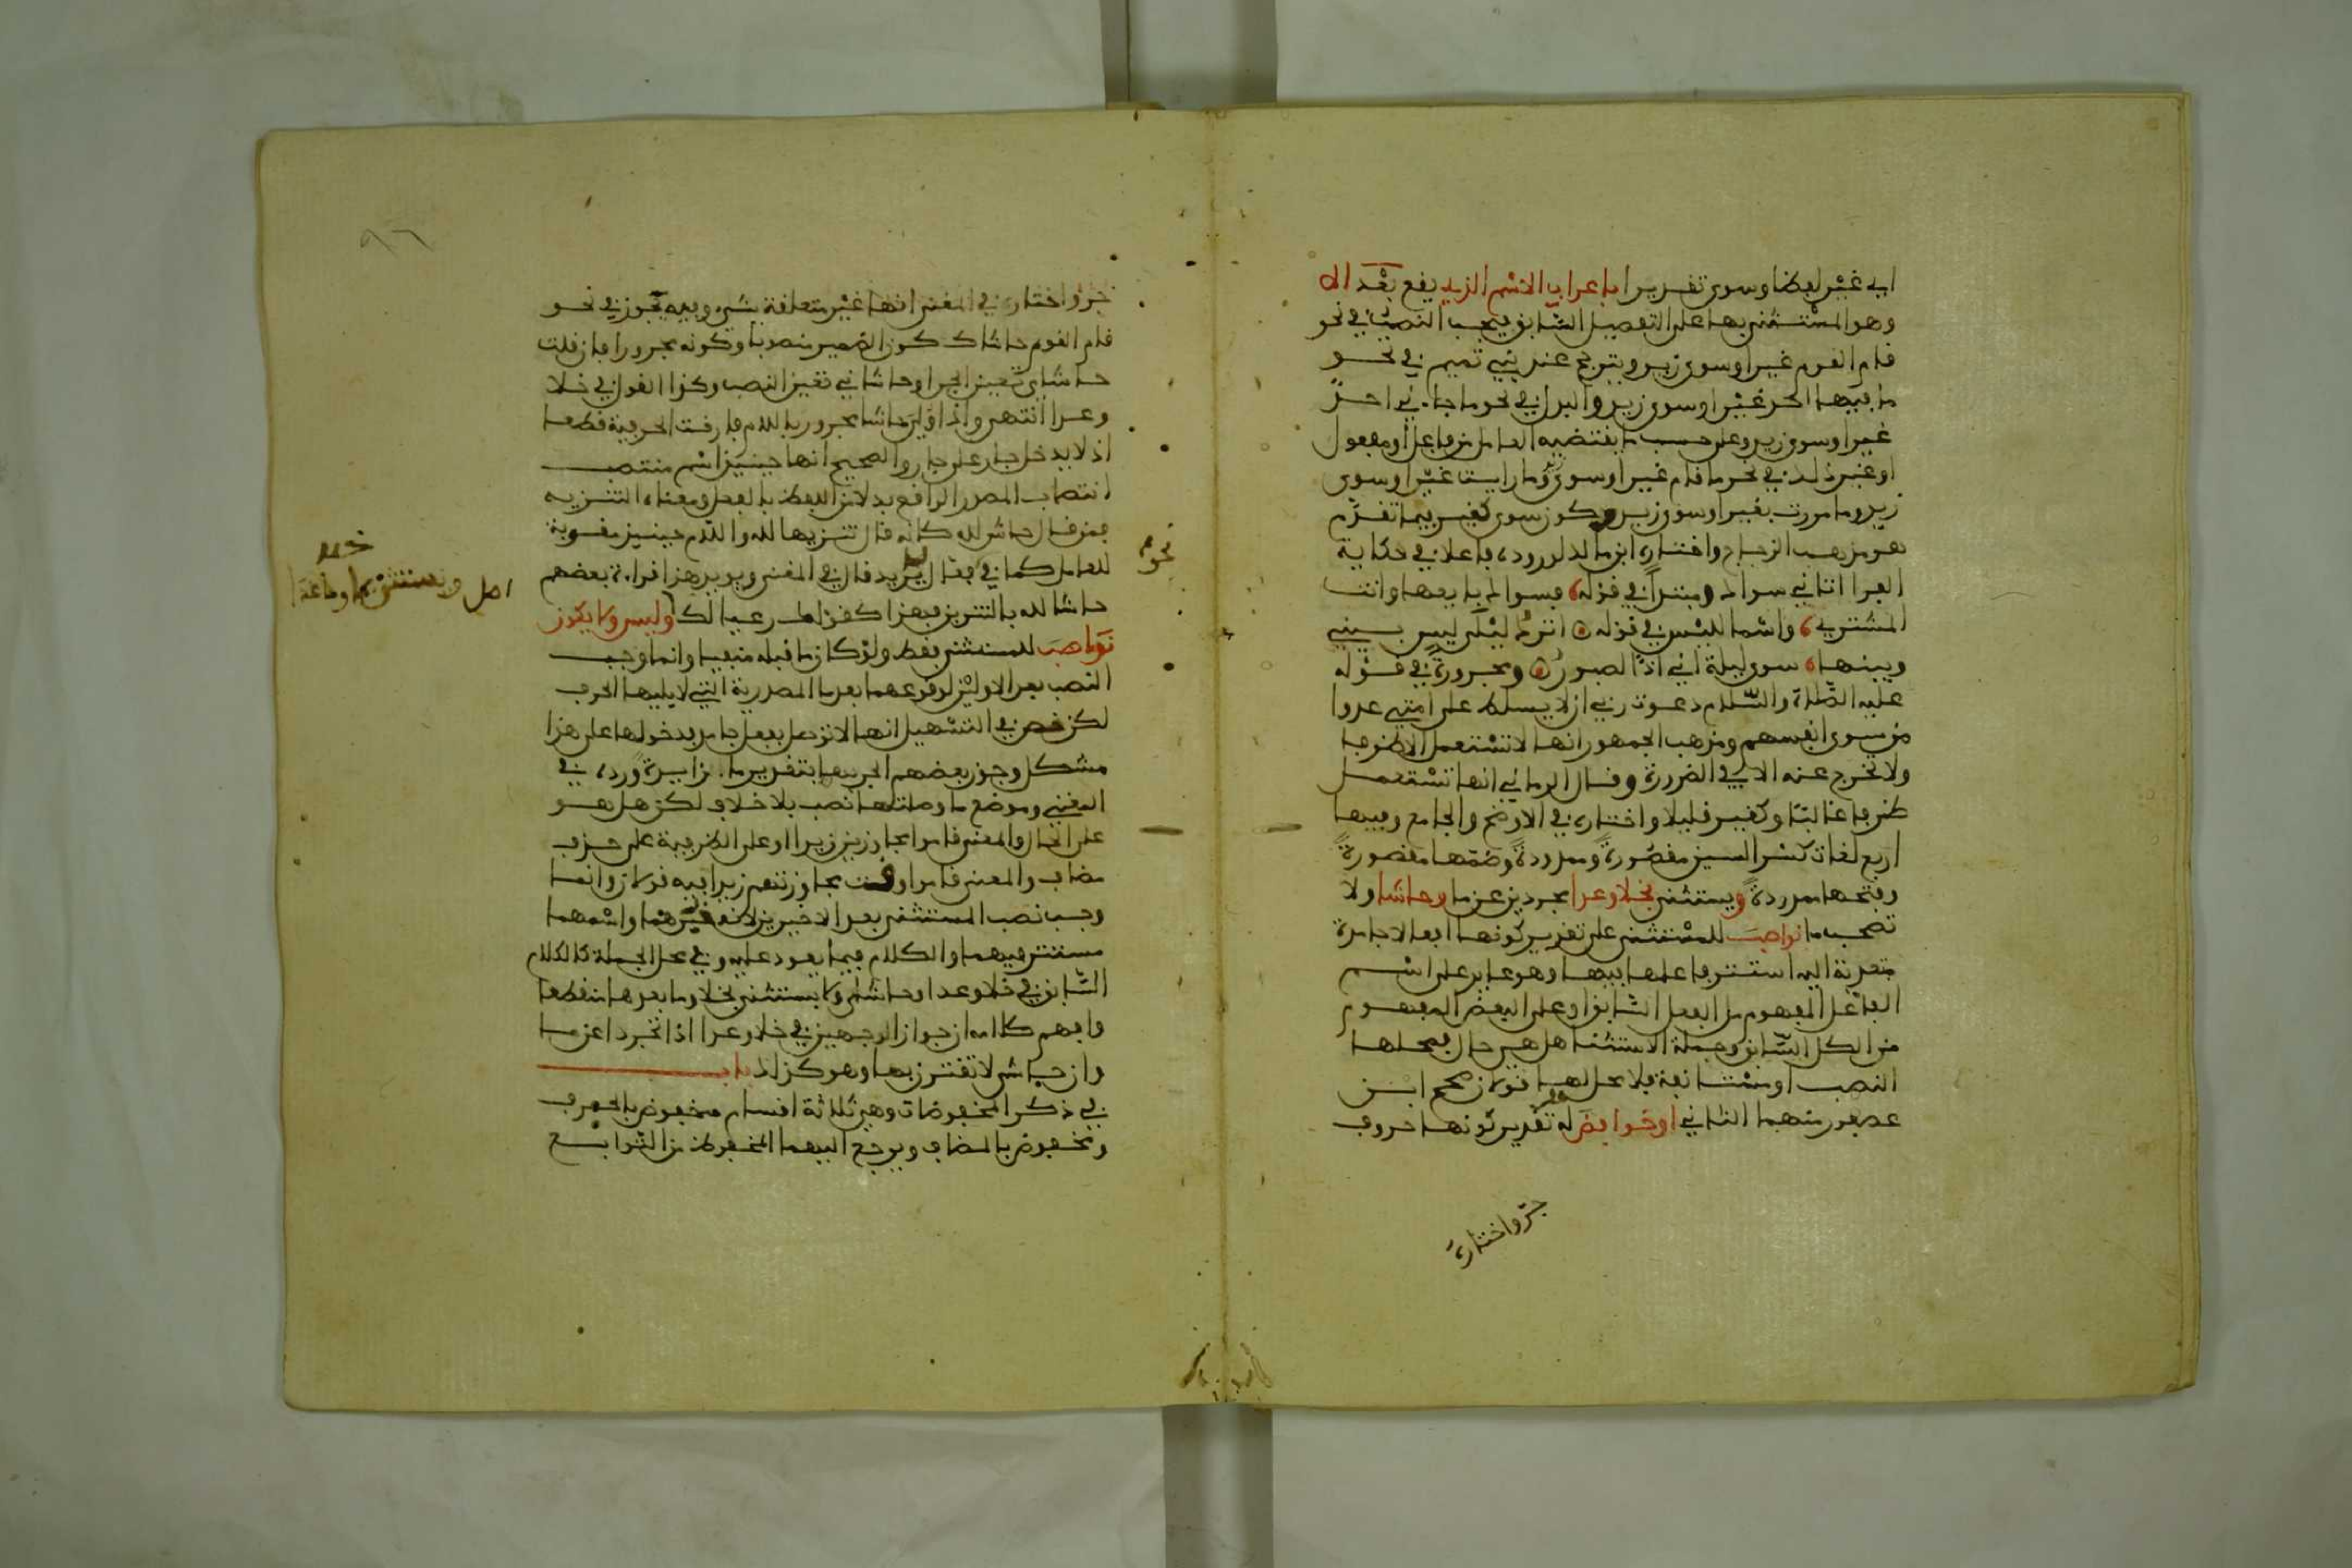 اي غير لفظا وسوى تقديرا باعراب الاسم الذي يقع بعد الا
وهو المستثنى بها على التفصيل السابق فيجب النصب في نحو
قام القوم غير او سوى زيد ويترجح عند بني تميم في نحو
ما فيها احد غير او سوى زيد والبدل في نحو ما جاءني احد
غير او سوى زيد وعلى حسب ما يقتضيه العامل من فاعل او مفعول
او غير ذلك في نحو ما قام غير او سوى زيد وما رايت غير او سوى
زيد وما مررت بغير او سوى زيد وكون سوى كغير فيما تقدم
هو مذهب الزجاج واختاره ابن مالك لوروده فاعلا في حكاية
الفرا اتاني سواك ومبتدا في قوله فسواك بايعها وانت
المشتري واسما لليس في قوله اترك ليلى ليس بيني
وبينها سوى ليلة اني اذا لصبور ومجرورة في قوله
عليه الصلاة والسلام دعوت ربي ان لا يسلط على امتي عدوا
من سوى انفسهم ومذهب الجمهور انها لا تستعمل الا ظرفا
ولا تخرج عنه الا في الضرورة وقال الرماني انها تستعمل
ظرفا غالبا وكغير قليلا واختاره في الاوضح والجامع وفيها
اربع لغات كسر السين مقصورة وممدودة وضمها مقصورة
وفتحها ممدودة ويستثنى بخلا وعدا مجردين عن ما وحاشا ولا
تصحب ما نواصب للمستثنى على تقدير كونها افعالا جامدة
متعدية اليه استتر فاعلها فيها وهو عايد على اسم
الفاعل المفهوم من الفعل السابق او على البعض المفهوم
من الكل السابق وجملة الاستثنا هل هي حال فمحلها
النصب او مستانفة فلا محل لها قولان صحح ابن
عصفور منهما الثاني او خوافض له تقدير كونها حروف
جر واختاره
جر واختار في المغني انها غير متعلقة بشيء وفيه يجوز في نحو
قام القوم حاشاك كون الضمير منصوبا وكونه مجرورا فان قلت
حاشاي تعين الجر او حاشاني تعين النصب وكذا القول في خلا
وعدا انتهى واذا ولي حاشا مجرور باللام فارقت الحرفية قطعا
اذ لا يدخل جار على جار والصحيح انها حينيذ اسم منتصب
انتصاب المصدر الواقع بدلا من اللفظ بالفعل ومعناه التنزيه
فمن قال حاش لله كانه قال تنزيها لله واللام حينيذ مقوية
للعامل كما في فعال لما يريد قال في المغني ويويد هذا قراءة بعضهم
حاشا لله بالتنوين فهذا كقولهم رعيا لك وليس ولا يكون
نواصب للمستثنى فقط ولو كان ما قبله منفيا وانما وجب
النصب بعد الاولين لوقوعهما بعد ما المصدرية التي لا يليها الحرف
لكن نص في التسهيل انها لا توصل بفعل جامد فدخولها على هذا
مشكل وجوز بعضهم الجر بهما بتقدير ما زايدة ورده في
المغني وموضع ما وصلتها نصب بلا خلاف لكن هل هو
على الحال والمعنى قاموا مجاوزين زيدا او على الظرفية على حذف
مضاف والمعنى قاموا وقت مجاوزتهم زيدا فيه قولان وانما
وجب نصب المستثنى بعد الاخيرين لانه خبرهما واسمهما
مستتر فيهما والكلام فيما يعود عليه وفي محل الجملة كالكلام
السابق في خلا وعدا وحاشا ولا يستثنى بخلا وما بعدها منقطعا
وافهم كلامه ان جواز الوجهين في خلا وعدا اذا تجردا عن ما
وان حاشى لا تقترن بها وهو كذلك باب
في ذكر المخفوضات وهي ثلاثة اقسام مخفوض بالحرف
ومخفوض بالمضاف ويرجع اليهما المخفوض من التوابع
نحوه
اصل ويستثنى بما وما عدا